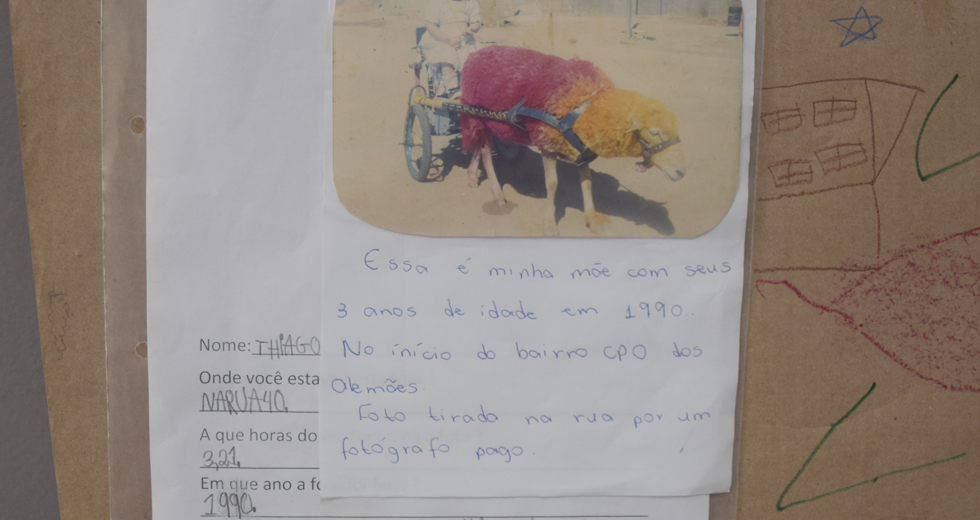 Essa é minha mãe com seus
3 anos de idade em 1990.
No início do bairro CPO dos
Alemães.
Foto tirada na rua por um
fotógrafo pago.
Nome: THIAGO
Onde você esta
NARUA40.
A que horas do
3,21.
Em que ano a fo
1990.